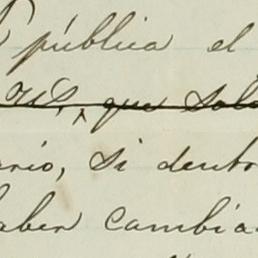 pública el
que sola
ario, si dentr
aber cambia